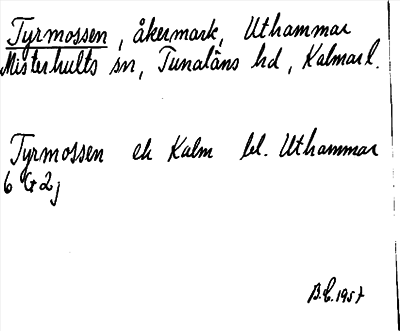 Tyrmossen, åkermark, Uthammar
Misterhults sn, Tunaläns hd, Kalmar l.
Tyrmossen ek Kalm bl. Uthammar
6 G 2j
B.E. 1957